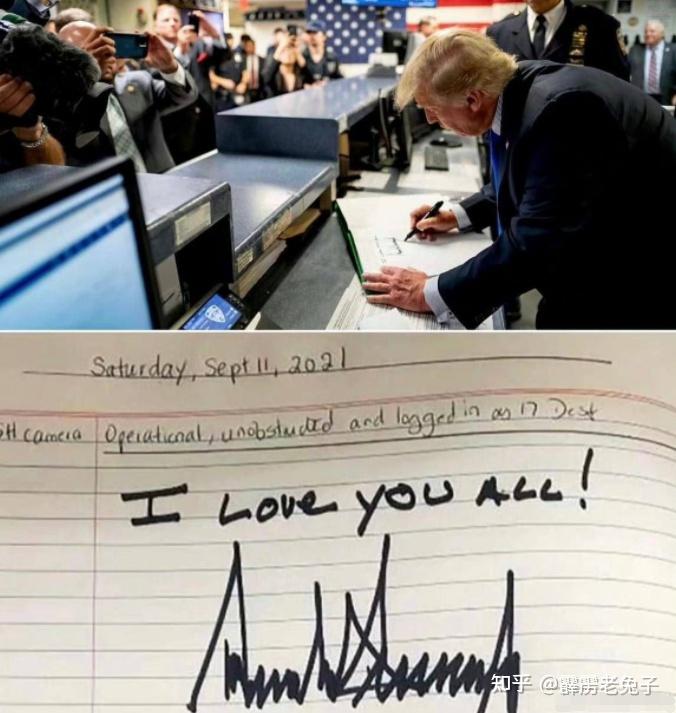 Saturday, Sept 11, 2021
camera
Operational, unobstructed and logged in as 17 Desk
I LOVE YOU ALL!
知乎 @霹雳老兔子